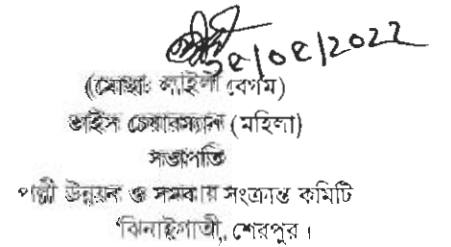 ১৫/০৫/2022
(মোছাঃ লাইলী বেগম)
ভাইস চেয়ারম্যান (মহিলা)
সভাপতি
পল্লী উন্নয়ন ও সমবায় সংক্রান্ত কমিটি
ঝিনাইগাতী, শেরপুর।